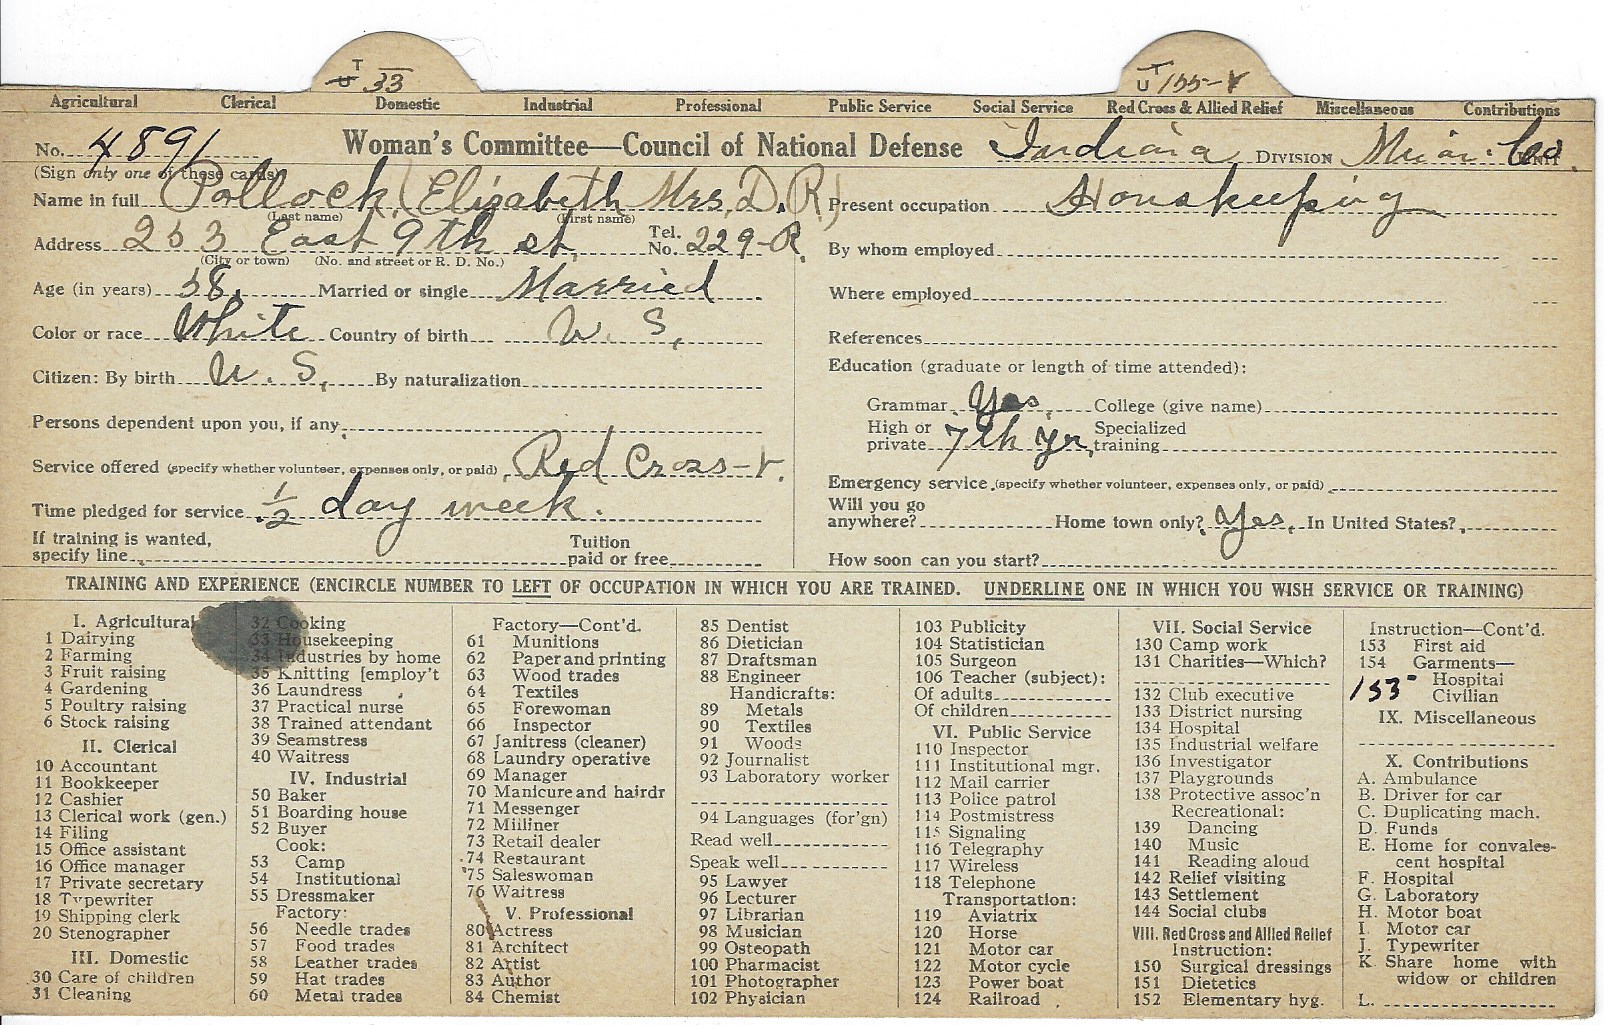 T
U 33
T
U 155-V
Agricultural Clerical Domestic Industrial Professional Public Service Social Service Red Cross & Allied Relief Miscellaneous Contributions
No. 4891 Woman's Committee—Council of National Defense Indiana DIVISION Miami Co. UNIT
(Sign only one of these cards)
Name in full Pollock (Elizabeth Mrs. D. R.)
(Last name) (First name)
Address 253 East 9th st, Tel. No. 229-R.
(City or town) (No. and street or R. D. No.)
Age (in years) 38. Married or single Married
Color or race White Country of birth U. S,
Citizen: By birth U. S, By naturalization
Persons dependent upon you, if any
Service offered (specify whether volunteer, expenses only, or paid) Red Cross-V.
Time pledged for service 1/2 day week.
If training is wanted,
specify line Tuition
paid or free
Present occupation Houskeeping
By whom employed
Where employed
References
Education (graduate or length of time attended):
Grammar Yes, College (give name)
High or
private 7th yr, Specialized
training
Emergency service (specify whether volunteer, expenses only, or paid)
Will you go
anywhere? Home town only? Yes, In United States?
How soon can you start?
TRAINING AND EXPERIENCE (ENCIRCLE NUMBER TO LEFT OF OCCUPATION IN WHICH YOU ARE TRAINED. UNDERLINE ONE IN WHICH YOU WISH SERVICE OR TRAINING)
I. Agricultural
1 Dairying
2 Farming
3 Fruit raising
4 Gardening
5 Poultry raising
6 Stock raising
II. Clerical
10 Accountant
11 Bookkeeper
12 Cashier
13 Clerical work (gen.)
14 Filing
15 Office assistant
16 Office manager
17 Private secretary
18 Typewriter
19 Shipping clerk
20 Stenographer
III. Domestic
30 Care of children
31 Cleaning
32 Cooking
33 Housekeeping
34 Industries by home
35 Knitting [employ't
36 Laundress
37 Practical nurse
38 Trained attendant
39 Seamstress
40 Waitress
IV. Industrial
50 Baker
51 Boarding house
52 Buyer
Cook:
53 Camp
54 Institutional
55 Dressmaker
Factory:
56 Needle trades
57 Food trades
58 Leather trades
59 Hat trades
60 Metal trades
Factory—Cont'd.
61 Munitions
62 Paper and printing
63 Wood trades
64 Textiles
65 Forewoman
66 Inspector
67 Janitress (cleaner)
68 Laundry operative
69 Manager
70 Manicure and hairdr
71 Messenger
72 Milliner
73 Retail dealer
74 Restaurant
75 Saleswoman
76 Waitress
V. Professional
80 Actress
81 Architect
82 Artist
83 Author
84 Chemist
85 Dentist
86 Dietician
87 Draftsman
88 Engineer
Handicrafts:
89 Metals
90 Textiles
91 Woods
92 Journalist
93 Laboratory worker
94 Languages (for'gn)
Read well
Speak well
95 Lawyer
96 Lecturer
97 Librarian
98 Musician
99 Osteopath
100 Pharmacist
101 Photographer
102 Physician
103 Publicity
104 Statistician
105 Surgeon
106 Teacher (subject):
Of adults
Of children
VI. Public Service
110 Inspector
111 Institutional mgr.
112 Mail carrier
113 Police patrol
114 Postmistress
115 Signaling
116 Telegraphy
117 Wireless
118 Telephone
Transportation:
119 Aviatrix
120 Horse
121 Motor car
122 Motor cycle
123 Power boat
124 Railroad
VII. Social Service
130 Camp work
131 Charities—Which?
132 Club executive
133 District nursing
134 Hospital
135 Industrial welfare
136 Investigator
137 Playgrounds
138 Protective assoc'n
Recreational:
139 Dancing
140 Music
141 Reading aloud
142 Relief visiting
143 Settlement
144 Social clubs
VIII. Red Cross and Allied Relief
Instruction:
150 Surgical dressings
151 Dietetics
152 Elementary hyg.
Instruction—Cont'd.
153 First aid
154 Garments—
Hospital
155 Civilian
IX. Miscellaneous
X. Contributions
A. Ambulance
B. Driver for car
C. Duplicating mach.
D. Funds
E. Home for convales-
cent hospital
F. Hospital
G. Laboratory
H. Motor boat
I. Motor car
J. Typewriter
K Share home with
widow or children
L.